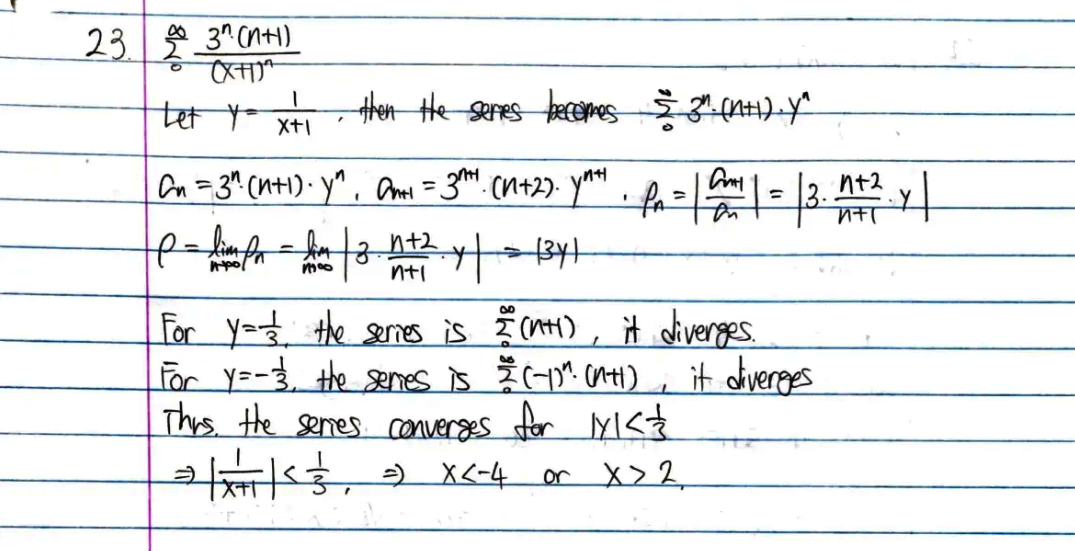 23. ∑₀^∞ 3ⁿ·(n+1) / (x+1)ⁿ
Let y = 1/(x+1), then the series becomes ∑₀^∞ 3ⁿ·(n+1)·yⁿ
aₙ = 3ⁿ·(n+1)·yⁿ, aₙ₊₁ = 3ⁿ⁺¹·(n+2)·yⁿ⁺¹, ρₙ = |aₙ₊₁/aₙ| = |3·(n+2)/(n+1)·y|
ρ = lim_{n→∞} ρₙ = lim_{n→∞} |3·(n+2)/(n+1)·y| = |3y|
For y=1/3, the series is ∑₀^∞ (n+1), it diverges.
For y=-1/3, the series is ∑₀^∞ (-1)ⁿ·(n+1), it diverges
Thus, the series converges for |y|<1/3
⇒ |1/(x+1)| < 1/3, ⇒ x<-4 or x>2.